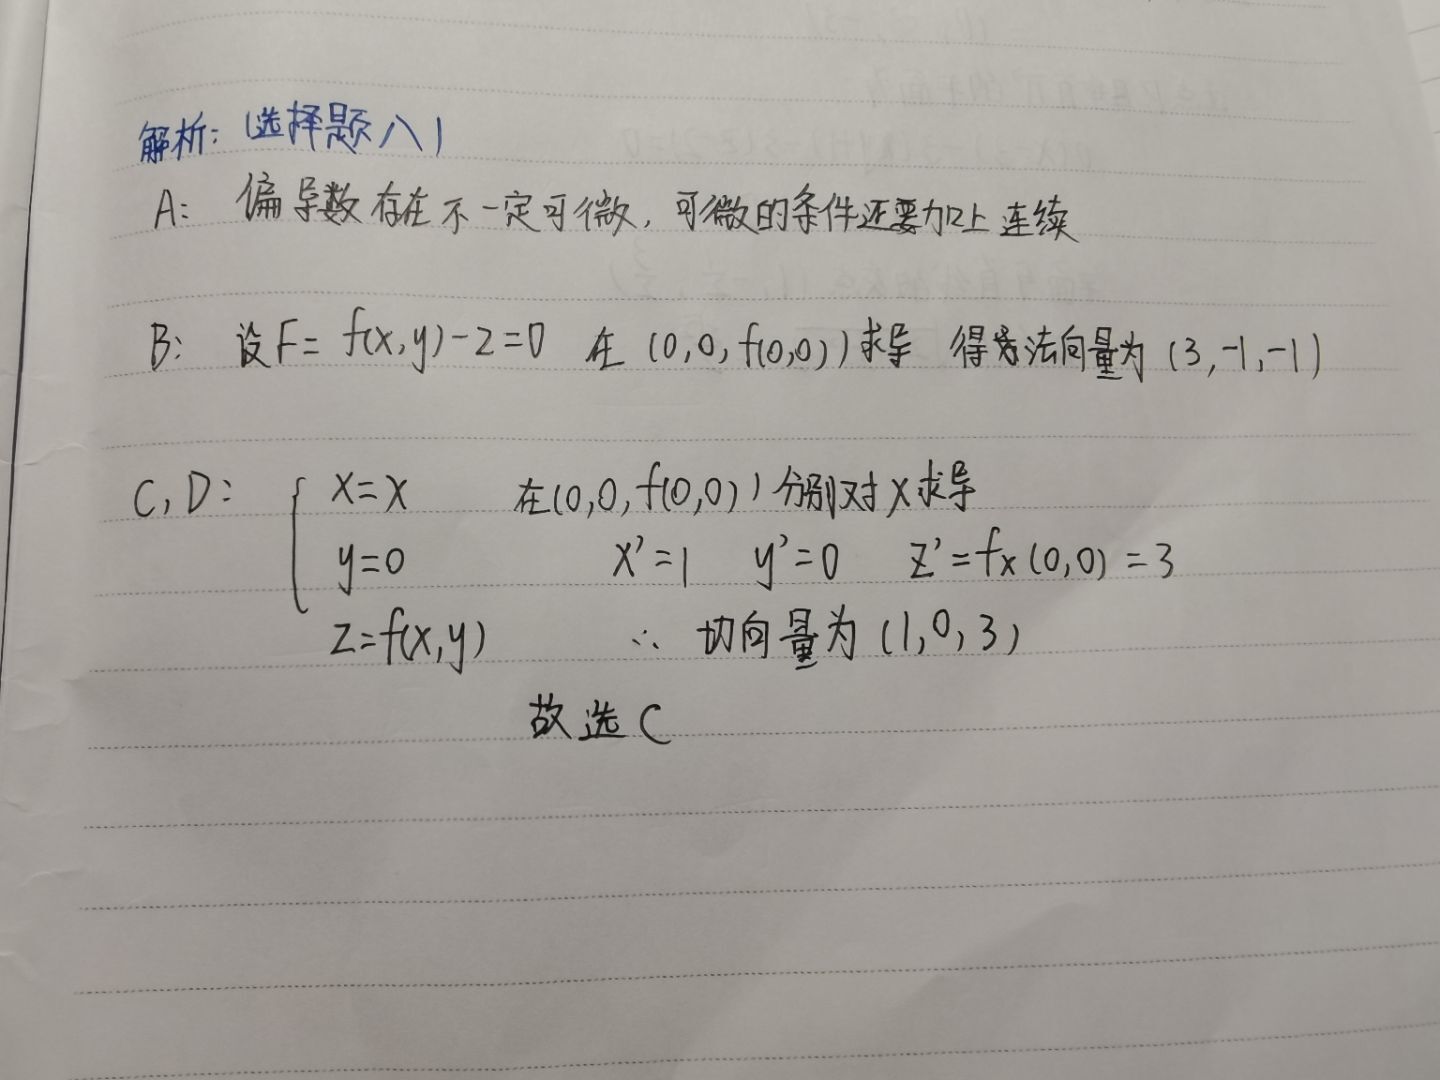 解析:（选择题八）
A: 偏导数存在不一定可微，可微的条件还要加上连续
B: 设F= f(x,y)-z=0 在 (0,0,f(0,0))求导 得法向量为 (3,-1,-1)
C,D: x=x 在(0,0,f(0,0))分别对x求导
y=0 x'=1 y'=0 z'=fx(0,0)=3
z=f(x,y) ∴ 切向量为(1,0,3)
故选C